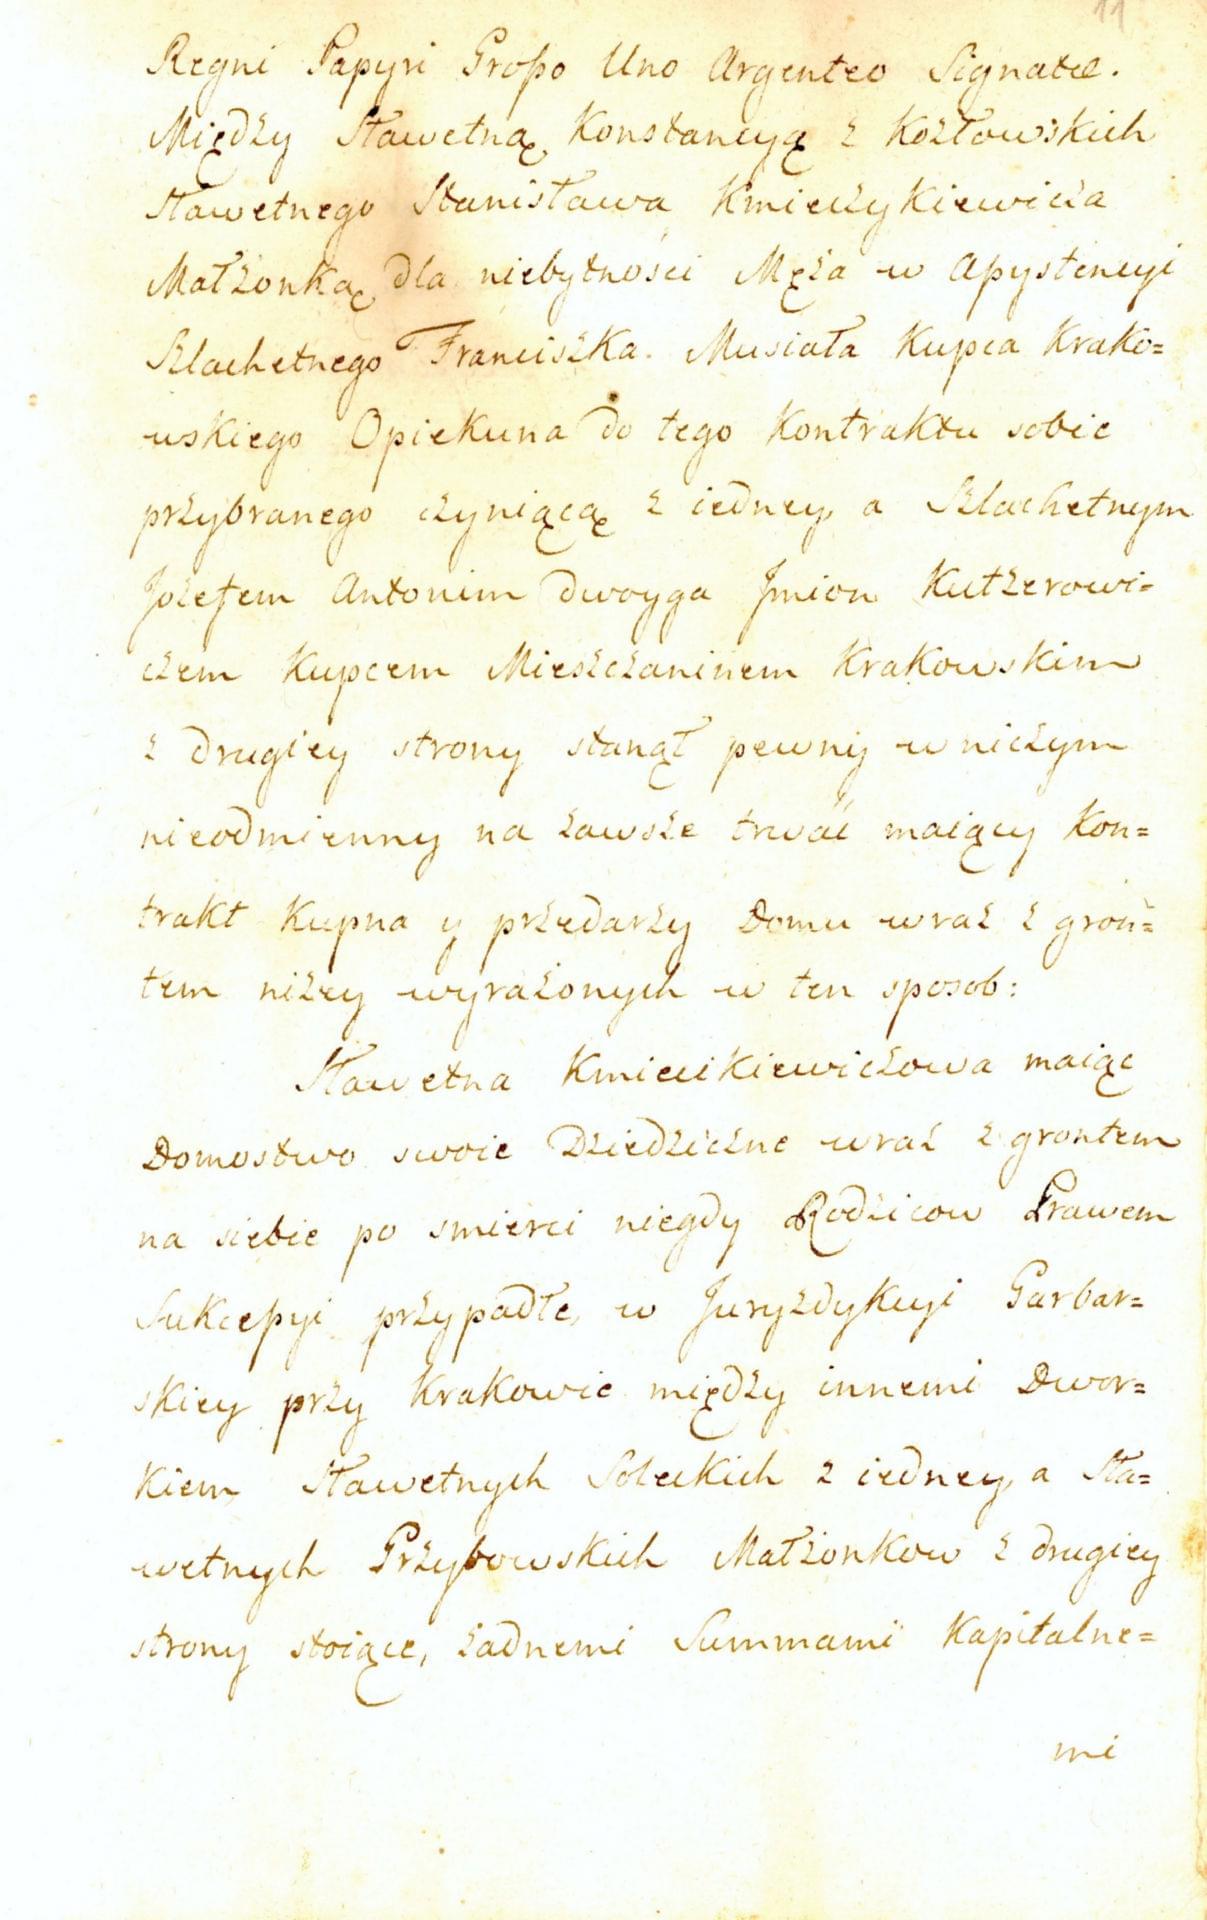 11
Regni Papyri Großo Uno Argenteo Signatæ.
Między Sławetną Konstancyą z Kozłowskich
Sławetnego Stanisława Kmieczykiewicza
Małżonką dla niebytności Męża w Aßystencyi
Szlachetnego Franciszka Musiała Kupca Krako=
wskiego Opiekuna do tego Kontraktu sobie
przybranego czyniącą z iedney, a Szlachetnym
Jozefem Antonim dwoyga Jmion Kutzerowi=
czem Kupcem Mieszczaninem Krakowskim
z drugiey strony stanął pewny w niczym
nieodmienny na zawsze trwać maiący Kon=
trakt Kupna y przedarzy Domu wraz z gron=
tem niżey wyrażonych w ten sposob:
Sławetna Kmiecikiewiczowa maiąc
Domostwo swoie Dziedziczne wraz z grontem
na siebie po smierci niegdy Rodzicow Prawem
Sukceßyi przypadłe, w Juryzdykcyi Garbar=
skiey przy Krakowie między innemi Dwor=
kiem Sławetnych Soleckich z iedney, a Sła=
wetnych Przybowskich Małżonkow z drugiey
strony stoiące, żadnemi Summami Kapitalne=
mi